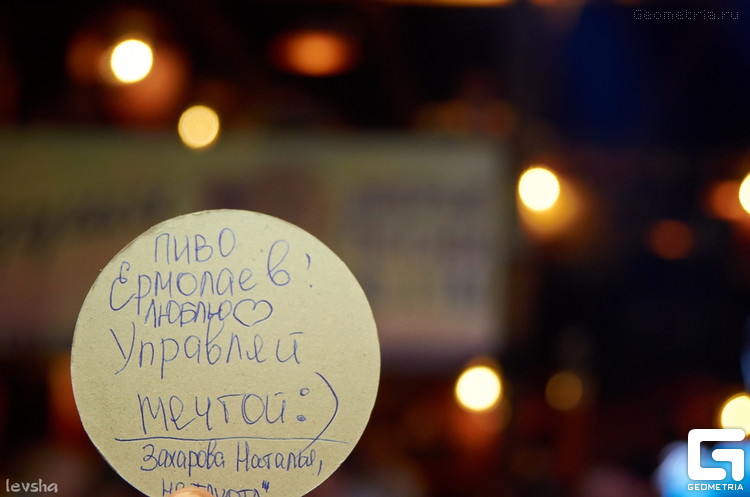 Geometria.ru
пиво
Ермолаев!
люблю♡
Управляй
мечтой:)
Захарова Наталья,
levsha
GEOMETRIA